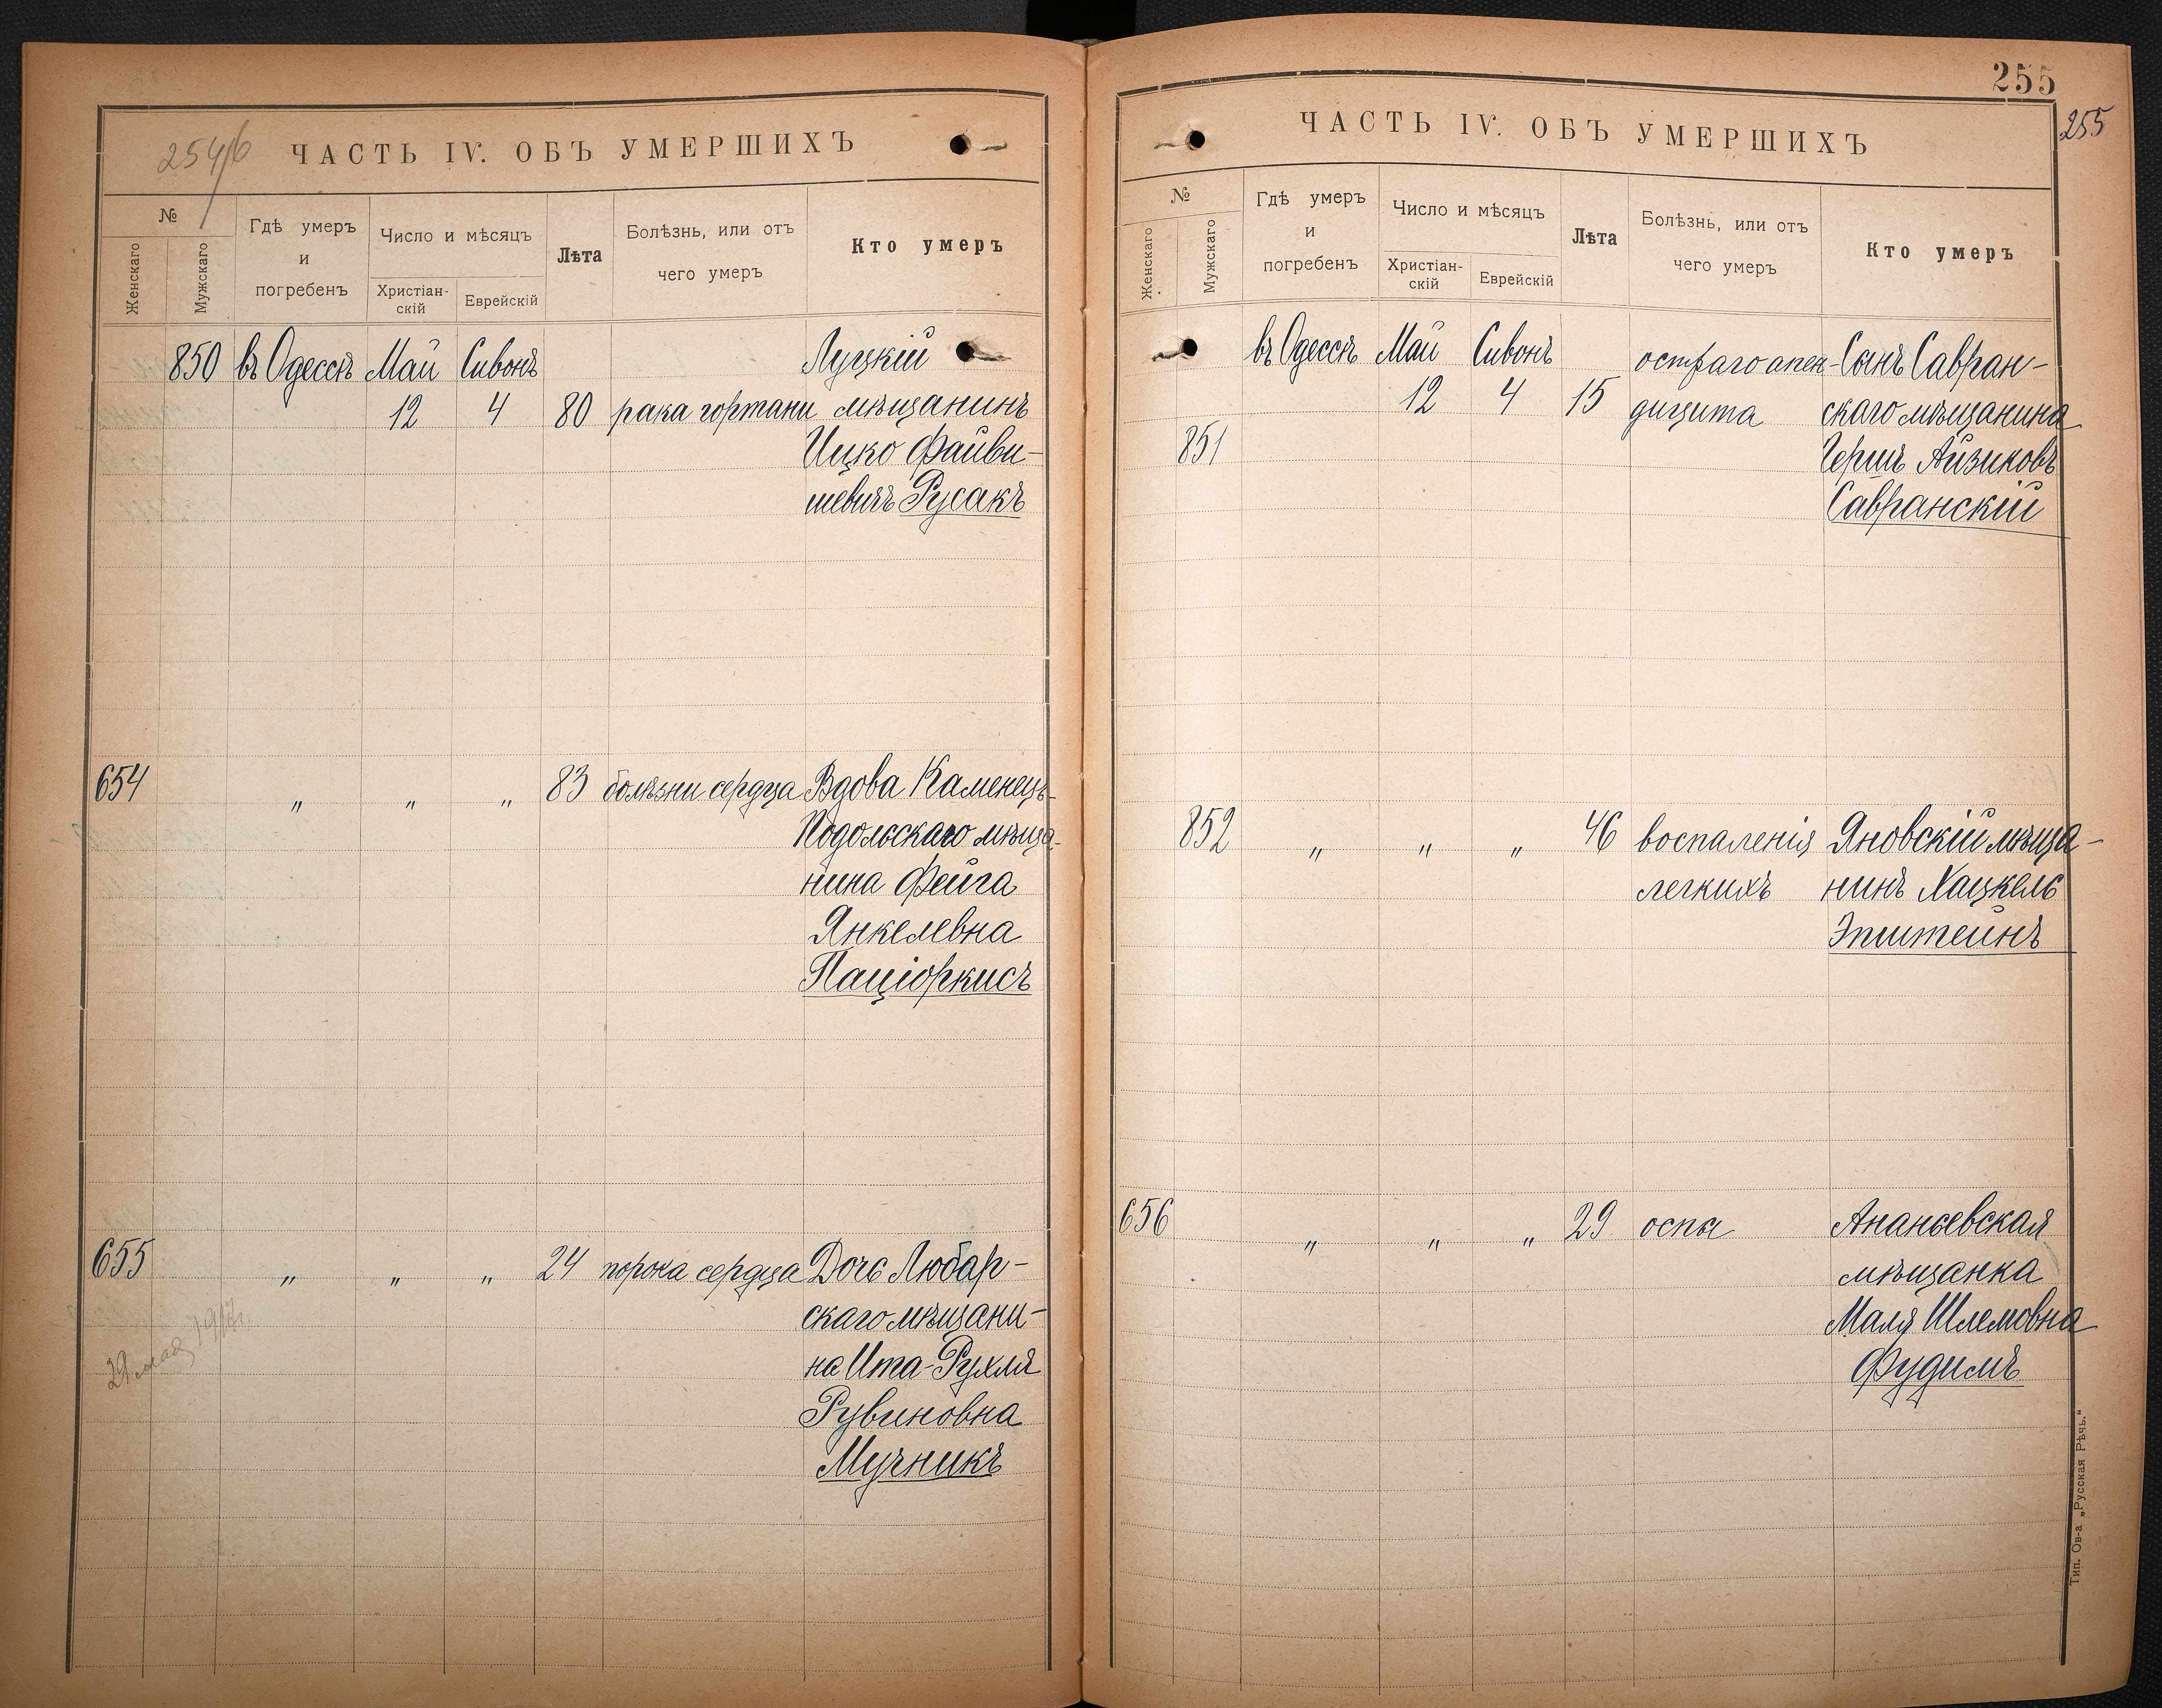 254/б
ЧАСТЬ IV. ОБЪ УМЕРШИХЪ
№
Женскаго
Мужскаго
Гдѣ умеръ
и
погребенъ
Число и мѣсяцъ
Христіан-
скій
Еврейскій
Лѣта
Болѣзнь, или отъ
чего умеръ
Кто умеръ
850 въ Одессѣ Май Сивонъ Луцкій
12 4 80 рака гортани мѣщанинъ
Ицко Файви-
шевичъ Русакъ
654 " " " 83 болѣзни сердца Вдова Каменецъ-
Подольскаго мѣща-
нина Фейга
Янкелевна
Паціоркисъ
655 " " " 24 порока сердца Дочь Любар-
скаго мѣщани-
на Ита-Рухля
Рувиновна
Мучникъ
29 мая 1917г.
255
255
ЧАСТЬ IV. ОБЪ УМЕРШИХЪ
№
Женскаго
Мужскаго
Гдѣ умеръ
и
погребенъ
Число и мѣсяцъ
Христіан-
скій
Еврейскій
Лѣта
Болѣзнь, или отъ
чего умеръ
Кто умеръ
въ Одессѣ Май Сивонъ остраго апен- Сынъ Савран-
12 4 15 дицита скаго мѣщанина
851 Гершъ Айзиковъ
Савранскій
852 " " " 46 воспаленія Яновскій мѣща-
легкихъ нинъ Хацкель
Эпштейнъ
656 " " " 29 оспы Ананьевская
мѣщанка
Маля Шлемовна
Фудимъ
Тип. Ов-а „Русская Рѣчь."